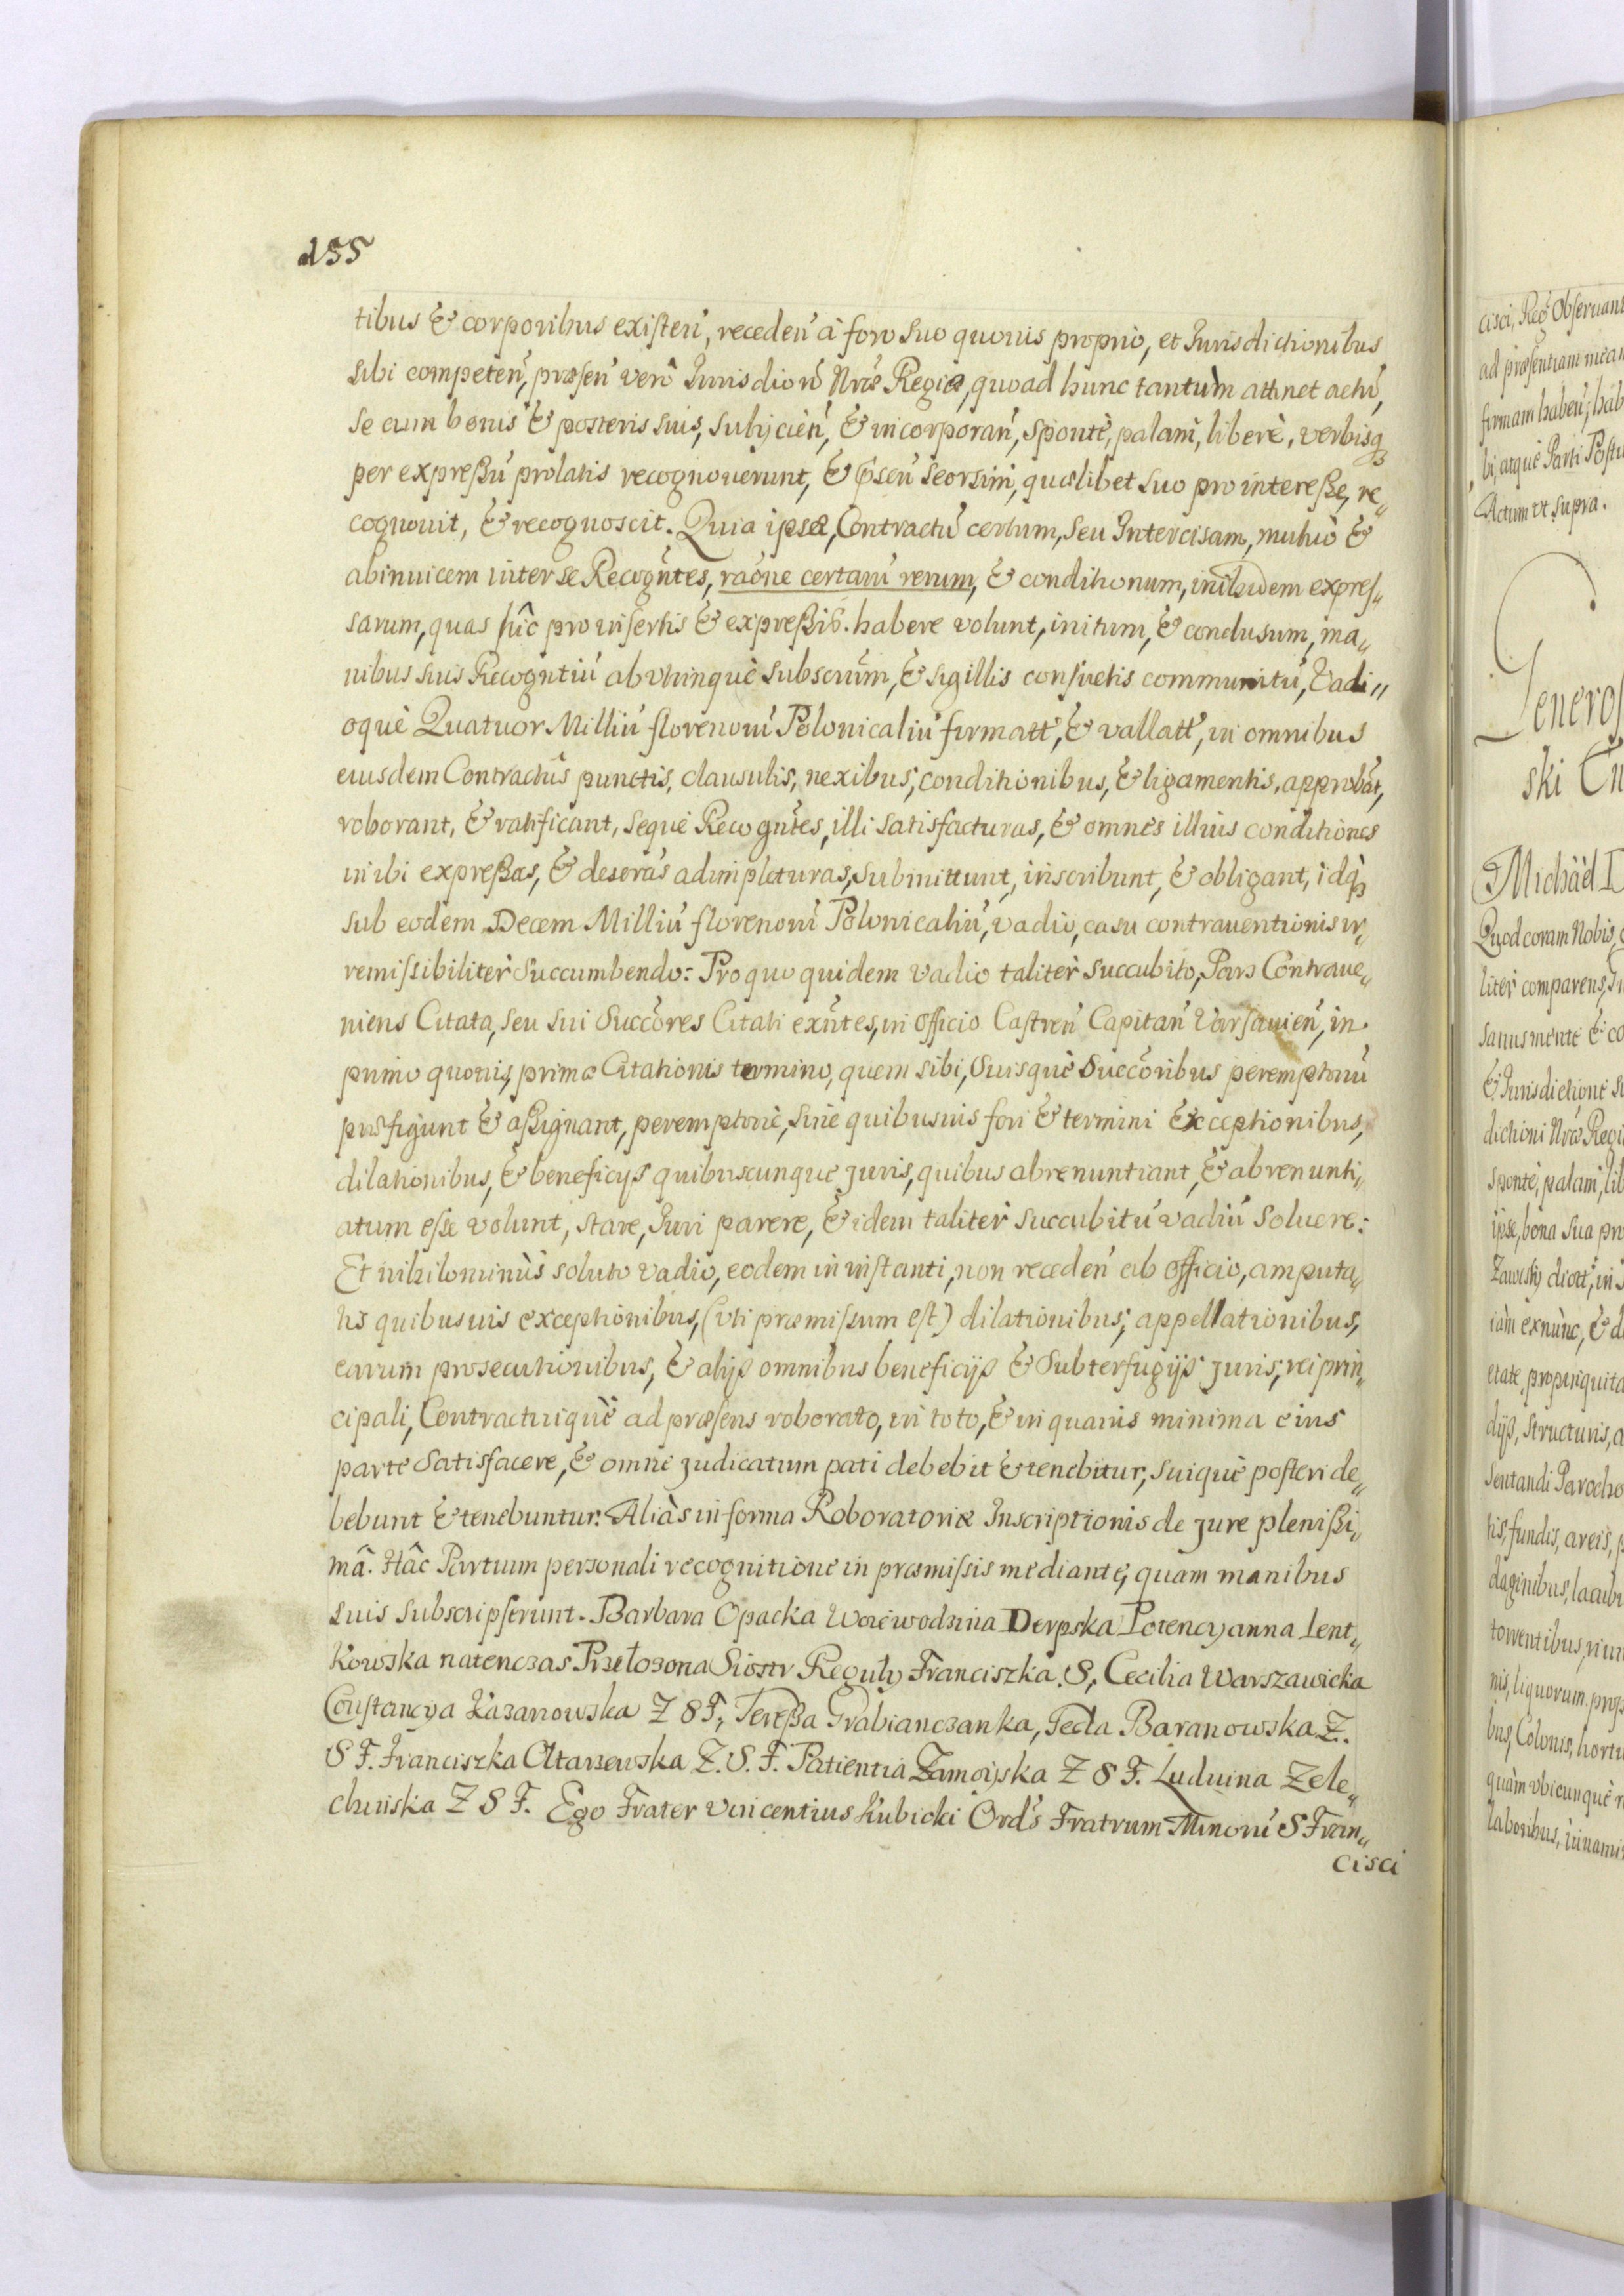 155
tibus & corporibus existeń, recedeń à foro suo quouis proprio, et Jurisdictionibus
sibi competeń, præseń verò Jurisdioń Nræ Regiæ, quoad hunc tantùm attinet actú,
se cum bonis & posteris suis, subijcień, & incorporań, spontè, palàm, liberè, verbisq3
per expreßú prolatis recognouerunt, & seorsim, quælibet suo pro intereße, re„
cognouit, & recognoscit. Quia ipsæ, Contractú certum, seu Intercisam, mutuò &
abinuicem inter se Recogńtes, raõne certarú rerum, & conditionum, inibidem expres„
sarum, quas hîc pro insertis & expreßis habere volunt, initum, & conclusum, ma„
nibus suis Recogntiú ab vtrinquè subscrim̃, & sigillis consuetis communitú, Vadi„
oquè Quatuor Milliú florenorú Polonicaliú firmatt, & vallatt, in omnibus
eiusdem Contractûs punctis, clausulis, nexibus, conditionibus, & ligamentis, approbãt,
roborant, & ratificant, sequè Recogńtes, illi satisfacturas, & omnes illius conditiones
inibi expreßas, & adimpleturas, submittunt, inscribunt, & obligant, idq3
sub eodem Decem Milliú florenorú Polonicaliú, vadio, casu contrauentionis ir„
remissibilitèr succumbendo: Pro quo quidem vadio talitèr succubito, Pars Contraue„
niens Citata, seu sui Succõres Citati exńtes, in officio Castreń Capitań Varsauień, in
primo quouis, primæ Citationis termino, quem sibi, Suisquè Succõribus peremptoriú
præfigunt & aßignant, peremptoriè, sine quibusuis fori & termini exceptionibus,
dilationibus, & beneficijs quibuscunque juris, quibus abrenuntiant, & abrenunti„
atum esse volunt, stare, Juri parere, & idem talitèr succubitú vadiú soluere:
Et nihilominùs soluto vadio, eodem in instanti, non recedeń ab officio, amputa„
tis quibusuis exceptionibus, (vti præmissum est) dilationibus, appellationibus,
earum prosecutionibus, & alijs omnibus beneficijs & Subterfugijs juris, rei prin„
cipali, Contractuiquè ad præsens roborato, in toto, & in quauis minima eius
parte satisfacere, & omne judicatum pati debebit & tenebitur, suiquè posteri de„
bebunt & tenebuntur. Aliàs in forma Roboratoriæ Inscriptionis de jure plenißi„
mâ. Hâc Partium personali recognitione in præmissis mediante, quam manibus
suis subscripserunt. Barbara Opacka Woiewodzina Derpska Potencyanna Lent„
kowska natenczas Przełozona Siostr Reguły Franciszka S, Cecilia Warszawicka
Constancya Kazanowska Z S F, Tereßa Grabianczanka, Tecla Baranowska Z.
S F. Franciszka Ołtarzewska Z. S. F. Patientia Zamoyska Z S F. Luduina Zele„
chinska Z S F. Ego Frater Vincentius Kubicki Ord̃s Fratrum Minorú S Fran„
cisci
cisci, Reg Obseruan
ad præsentiam
firmam habeń, hab
bi, atquè Parti Postu
Actum vt supra.
Generos
ski
Michaël
Quod coram Nobis
litèr comparens
sanus mente & co
& Jurisdictione
dictioni Nræ Regi
spontè, palàm, lib
ipse, bona sua pro
diott, in
iàm exnùnc, & d
etate, propinquita
dijs, structuris, a
sentandi Parocho
tis, fundis, areis,
daginibus, lacubu
torrentibus,
nis, liquorum
bus, Colonis, hortu
quàm vbicunquè
laboribus,